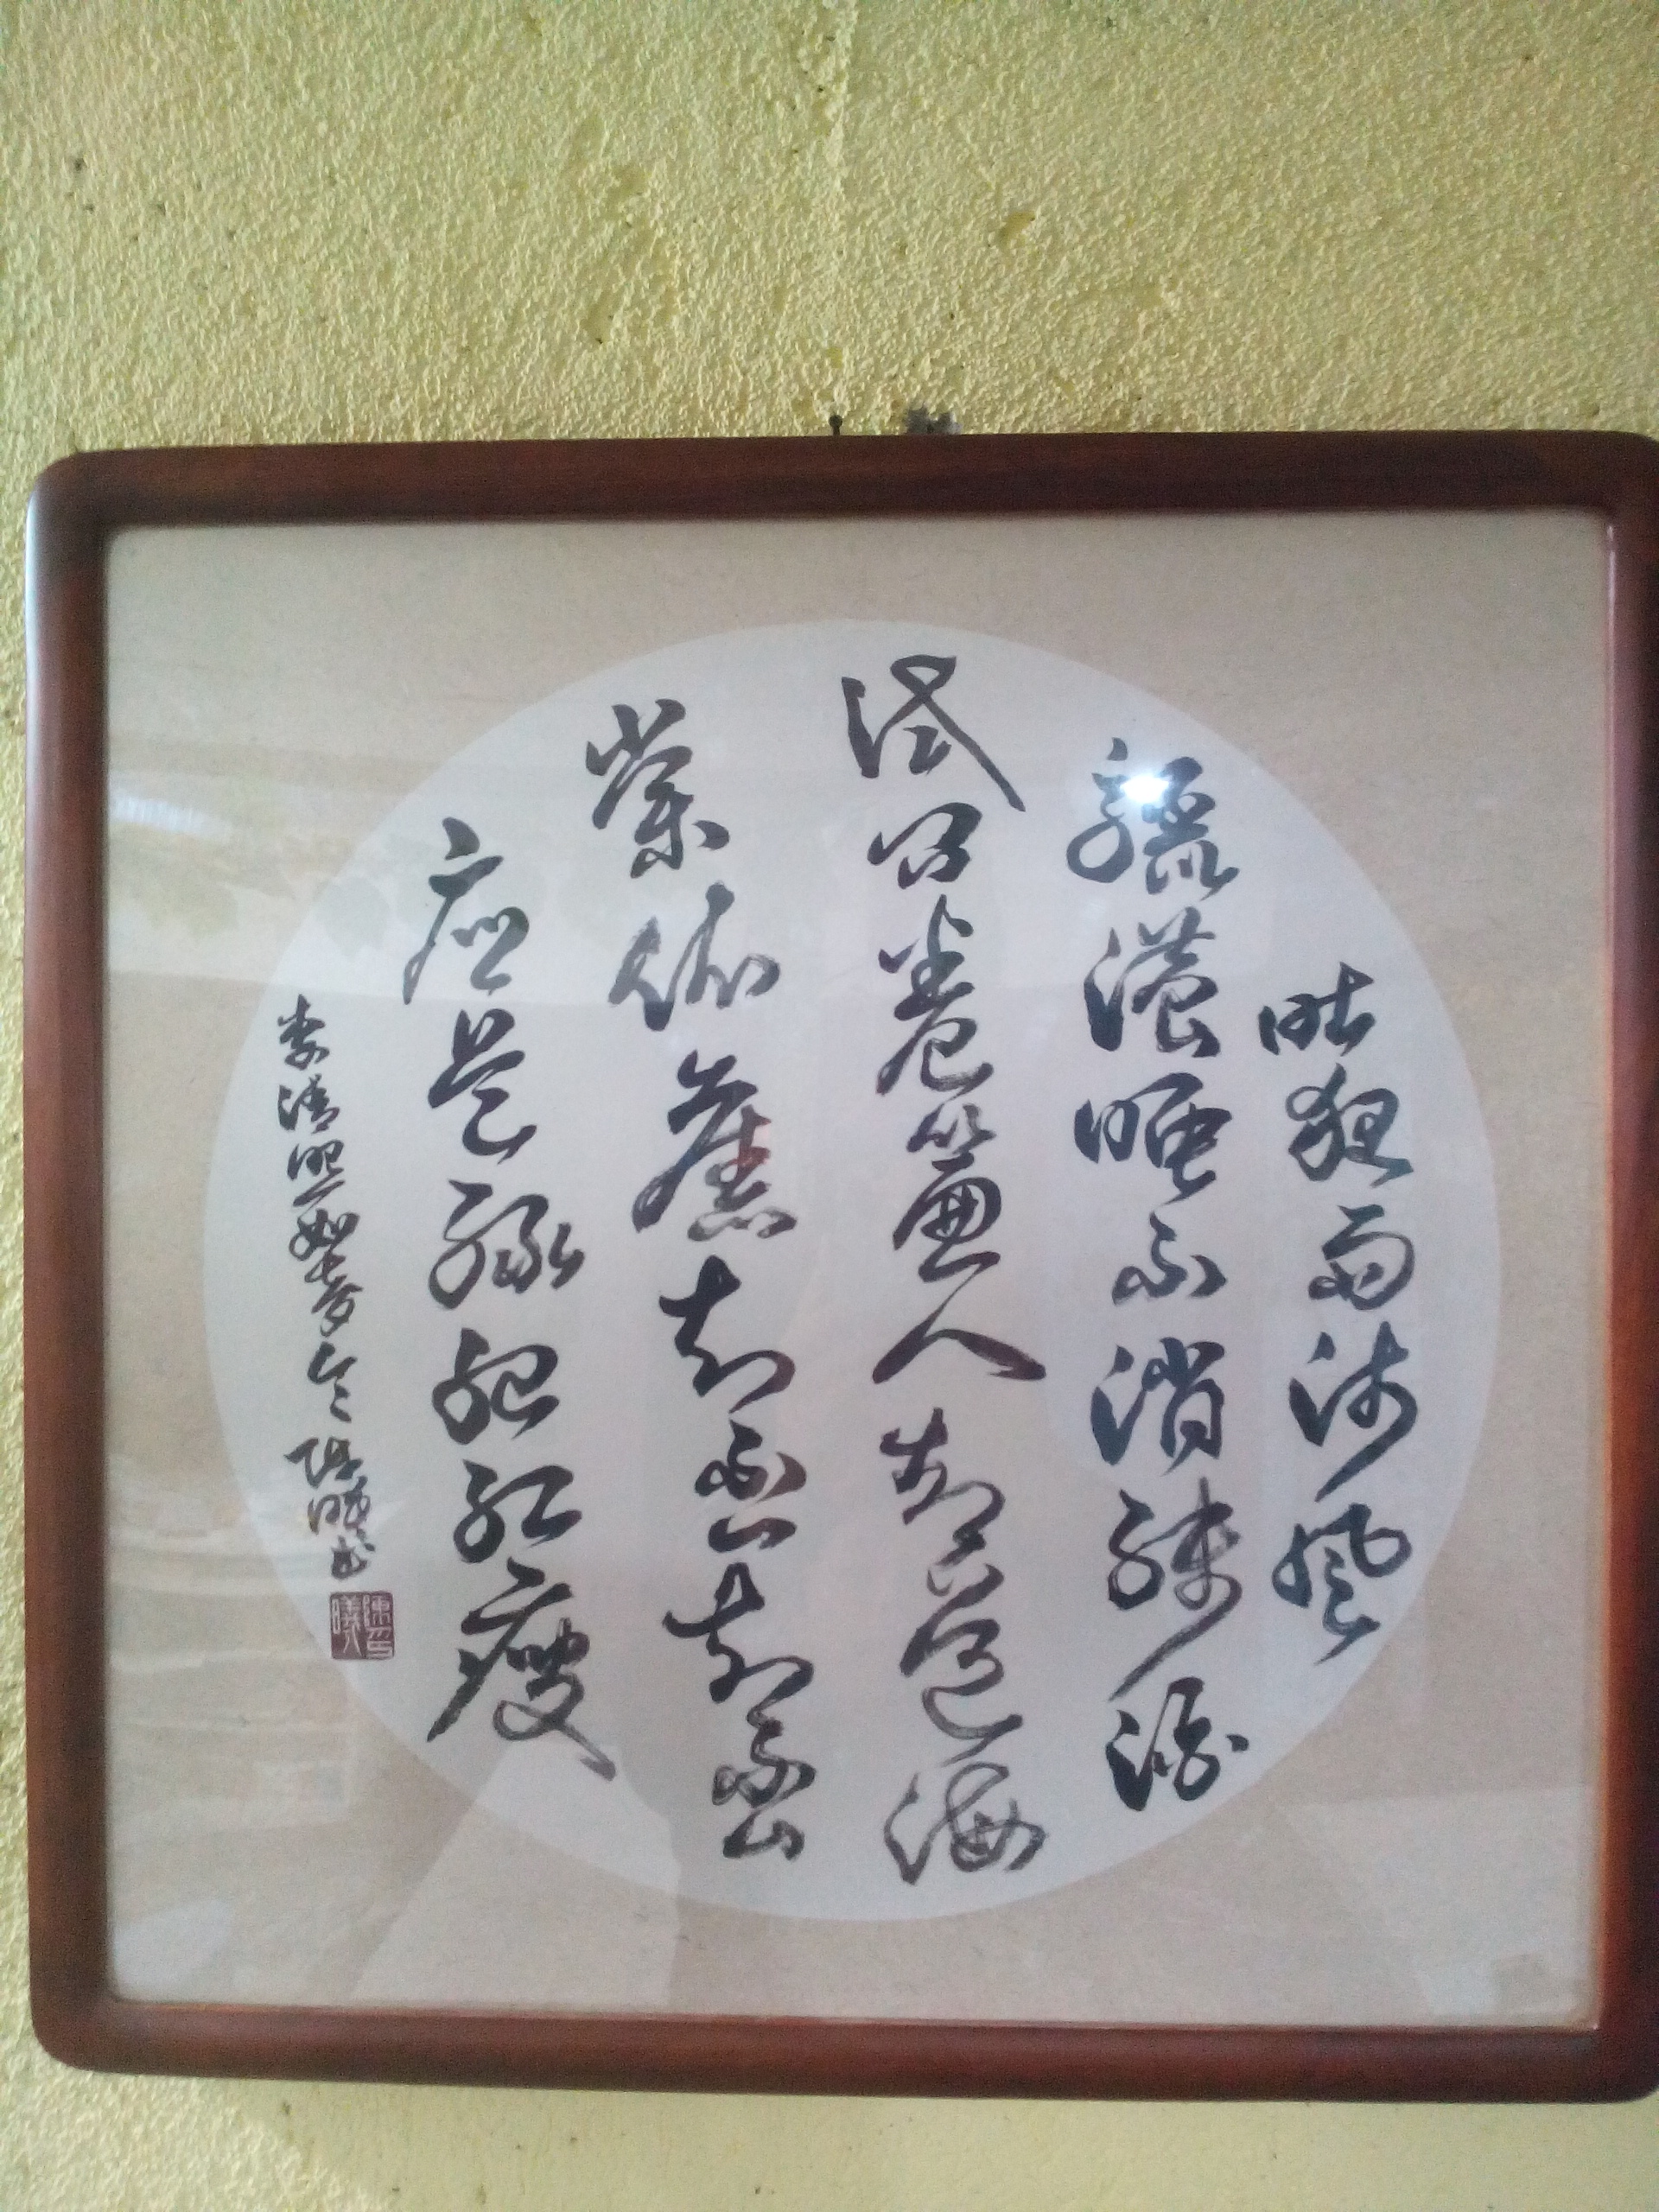 昨夜雨疏風
驟濃睡不消殘酒
試問卷簾人却道海
棠依舊知否知否
應是綠肥紅瘦
李清照如夢令 陳曦書
陳曦印